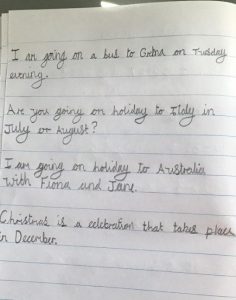 I am going on a bus to Gretna on Tuesday
evening.
Are you going on holiday to Italy in
July or August?
I am going on holiday to Australia
with Fiona and Jane.
Christmas is a celebration that takes place
in December.